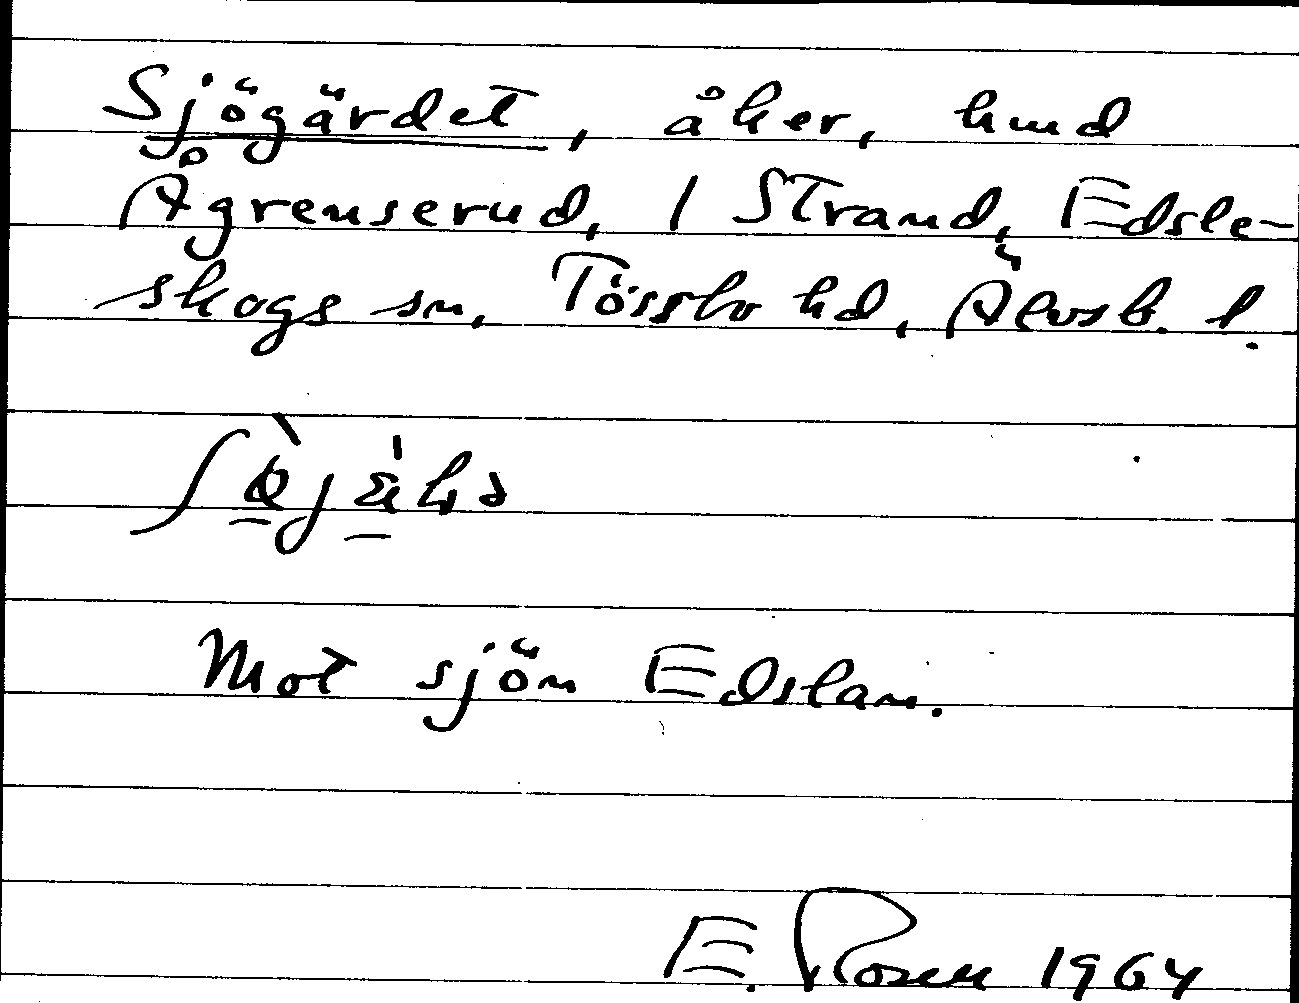 Sjögärdet, åker, hmd
Ågrenserud, 1 Strand, Edsle-
skogs sn, Tössbo hd, Älvsb. l.
Mot sjön Edslan.
E. Rosen 1964